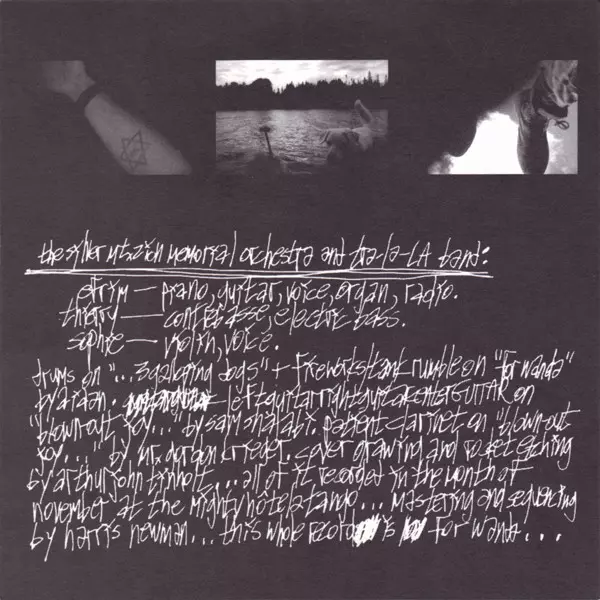 the silver mt. zion memorial orchestra and tra-la-LA band:
efrim — piano, guitar, voice, organ, radio.
thierry — contrebasse, electric bass.
sophie — violin, voice.
drums on "...3 galloping dogs" + fireworks/tant rumble on "for wanda"
by aidan. left guitar right guitar CENTER GUITAR on
"blown-out joy..." by sam shalabi. patient clarinet on "blown-out
joy..." by mr. gordon krieger. cover drawing and etching
by arthur john ... all of it recordet in the month of
november at the mighty hôtel2tango... mastering and sequencing
by harris newman... this whole record is for wanda...